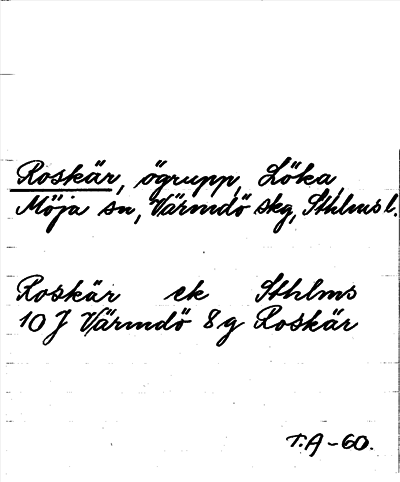 Roskär, ögrupp, Löka,
Möja sn, Värmdö skg, Sthlms l.
Roskär ek Sthlms
10 J Värmdö 8 g Roskär
T.A -60.